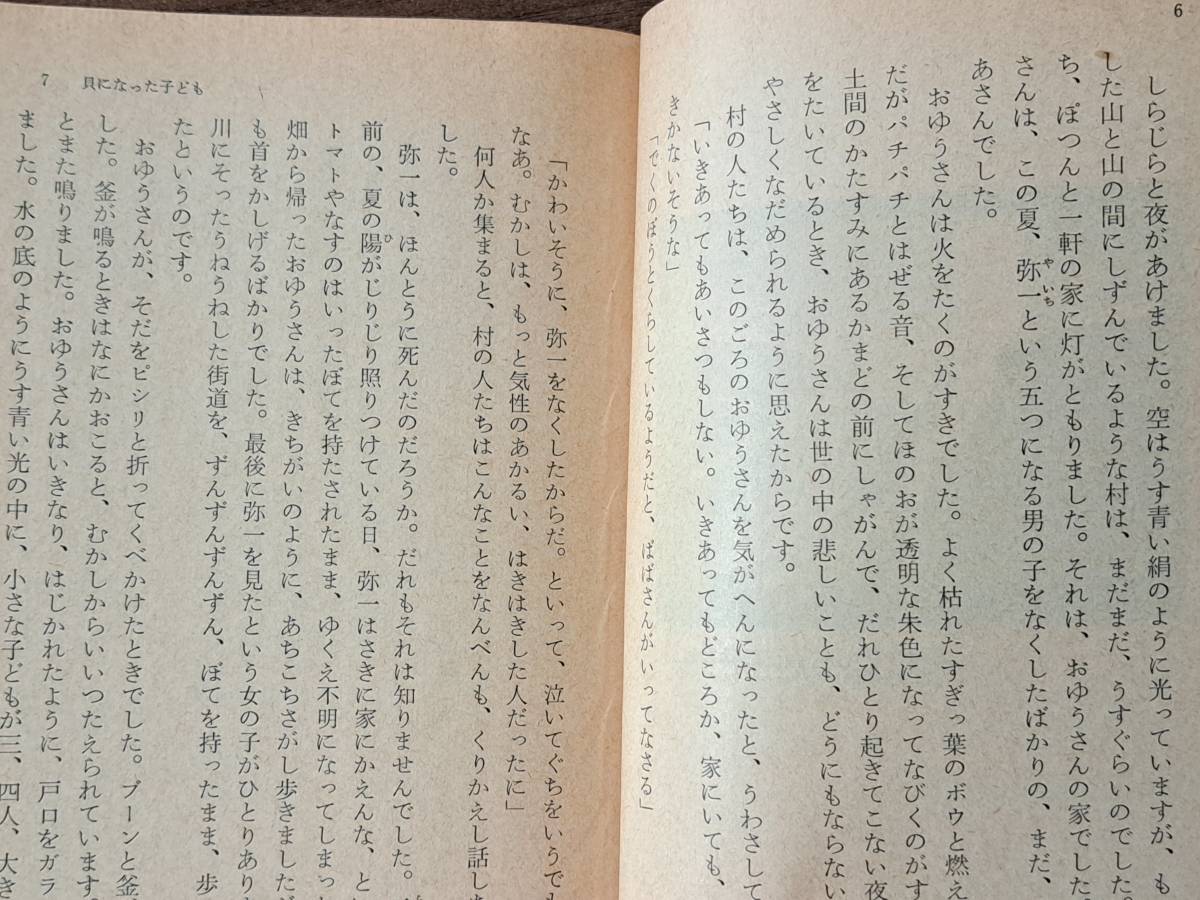 6
しらじらと夜があけました。空はうす青い絹のように光っていますが、も
した山と山の間にしずんでいるような村は、まだまだ、うすぐらいのでした。
ち、ぽつんと一軒の家に灯がともりました。それは、おゆうさんの家でした。
さんは、この夏、弥一という五つになる男の子をなくしたばかりの、まだ、
やいち
あさんでした。
おゆうさんは火をたくのがすきでした。よく枯れたすぎっ葉のボウと燃え
だがパチパチとはぜる音、そしてほのおが透明な朱色になってなびくのがす
土間のかたすみにあるかまどの前にしゃがんで、だれひとり起きてこない夜
をたいているとき、おゆうさんは世の中の悲しいことも、どうにもならない
やさしくなだめられるように思えたからです。
村の人たちは、このごろのおゆうさんを気がへんになったと、うわさして
「いきあってもあいさつもしない。いきあってもどころか、家にいても、
きかないそうな」
「でくのぼうとくらしているようだと、ばばさんがいってなさる」
7 貝になった子ども
「かわいそうに、弥一をなくしたからだ。といって、泣いてぐちをいうでも
なあ。むかしは、もっと気性のあかるい、はきはきした人だったに」
何人か集まると、村の人たちはこんなことをなんべんも、くりかえし話し
した。
弥一は、ほんとうに死んだのだろうか。だれもそれは知りませんでした。
前の、夏の陽がじりじり照りつけている日、弥一はさきに家にかえんな、と
ひ
トマトやなすのはいったぼてを持たされたまま、ゆくえ不明になってしまっ
畑から帰ったおゆうさんは、きちがいのように、あちこちさがし歩きました
も首をかしげるばかりでした。最後に弥一を見たという女の子がひとりあり
川にそったうねうねした街道を、ずんずんずんずん、ぼてを持ったまま、歩
たというのです。
おゆうさんが、そだをピシリと折ってくべかけたときでした。ブーンと釜
した。釜が鳴るときはなにかおこると、むかしからいいつたえられています。
とまた鳴りました。おゆうさんはいきなり、はじかれたように、戸口をガラ
ました。水の底のようにうす青い光の中に、小さな子どもが三、四人、大き